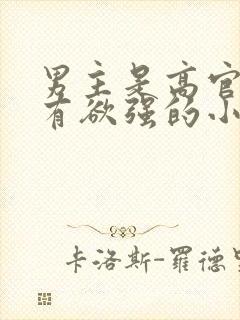 男主是高官
有欲强的小
卡洛斯-罗德里